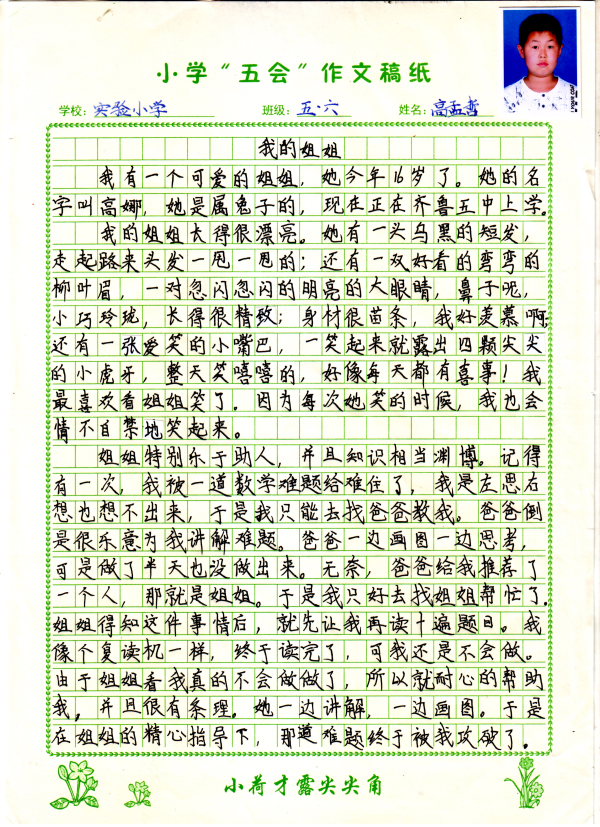 小学“五会”作文稿纸
学校：实验小学 班级：五·六 姓名：高孟哲
我的姐姐
我有一个可爱的姐姐，她今年16岁了。她的名
字叫高娜，她是属兔子的，现在正在齐鲁五中上学。
我的姐姐长得很漂亮。她有一头乌黑的短发，
走起路来头发一甩一甩的；还有一双好看的弯弯的
柳叶眉，一对忽闪忽闪的明亮的大眼睛，鼻子呢，
小巧玲珑，长得很精致；身材很苗条，我好羡慕啊；
还有一张爱笑的小嘴巴，一笑起来就露出四颗尖尖
的小虎牙，整天笑嘻嘻的，好像每天都有喜事！我
最喜欢看姐姐笑了。因为每次她笑的时候，我也会
情不自禁地笑起来。
姐姐特别乐于助人，并且知识相当渊博。记得
有一次，我被一道数学难题给难住了，我是左思右
想也想不出来，于是我只能去找爸爸教我。爸爸倒
是很乐意为我讲解难题。爸爸一边画图一边思考，
可是做了半天也没做出来。无奈，爸爸给我推荐了
一个人，那就是姐姐。于是我只好去找姐姐帮忙了。
姐姐得知这件事情后，就先让我再读十遍题目。我
像个复读机一样，终于读完了，可我还是不会做。
由于姐姐看我真的不会做做了，所以就耐心的帮助
我。并且很有条理。她一边讲解，一边画图。于是
在姐姐的精心指导下，那道难题终于被我攻破了。
小荷才露尖尖角